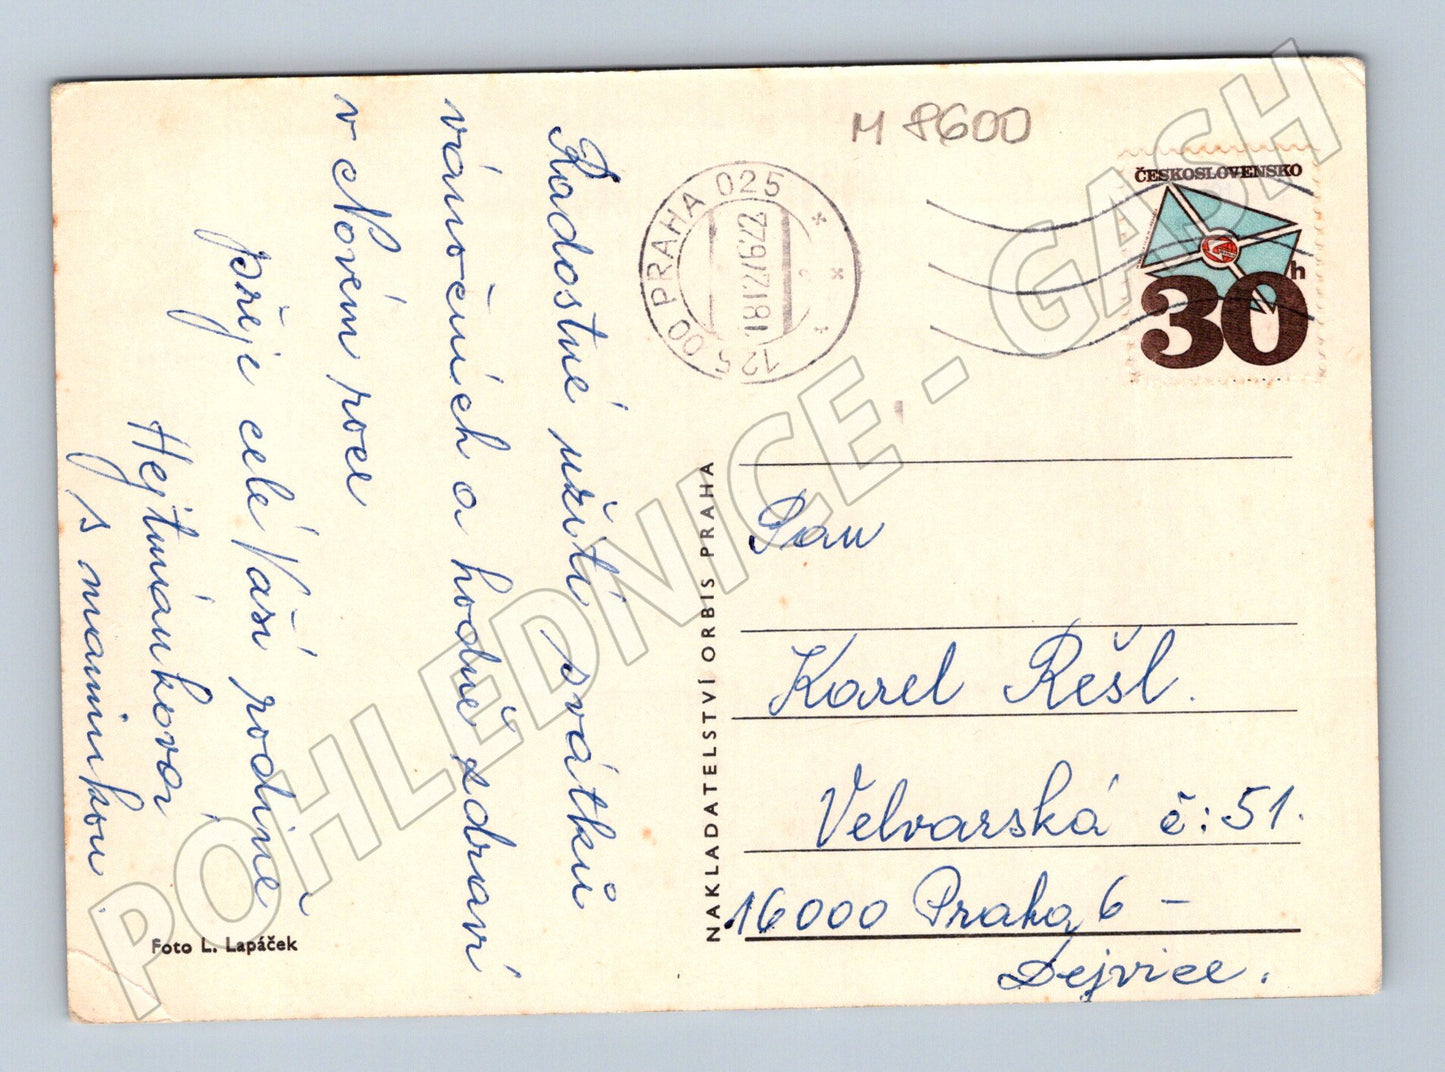 Radostné užití svátků
vánočních a hodně zdraví
v Novém roce
přeje celé Vaší rodině
Hejtmánková
s maminkou.
Foto L. Lapáček
NAKLADATELSTVÍ ORBIS PRAHA
M 8600
125 00 PRAHA 025
ČESKOSLOVENSKO
30h
Pan
Karel Rešl.
Velvarská č: 51.
16000 Praha 6 –
Dejvice.
POHLEDNICE - GASH